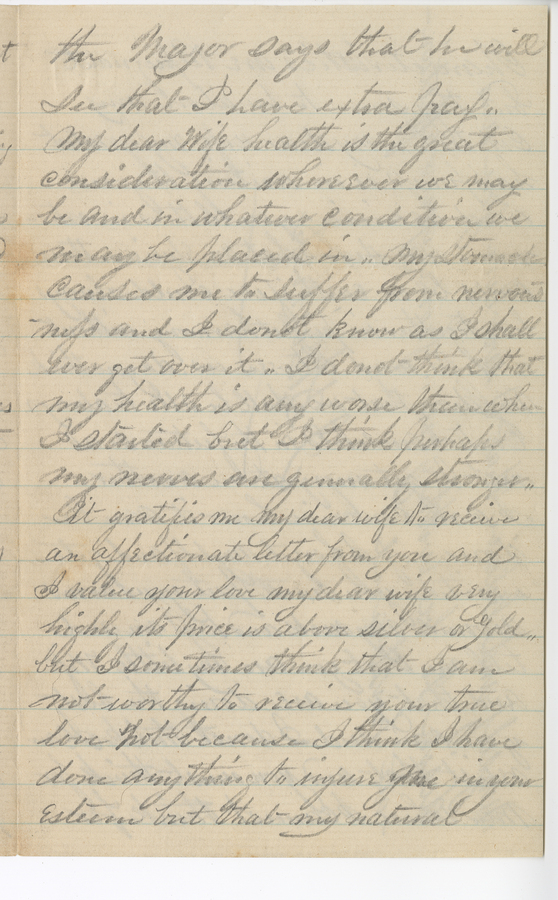 the Major says that he will
See that I have extra pay„
My dear Wife health is the great
consideration whereever we may
be and in whatever condition we
may be placed in„ My stomach
causes me to suffer from nervous
ness and I dont know as I shall
ever get over it„ I dont think that
my health is any worse than when
I started but I think perhaps
my nerves are generally stronger„
It gratifies me my dear wife to receive
an affectionate letter from you and
I value your love my dear wife very
highly its price is above silver or gold„
but I sometimes think that I am
not worthy to receive your true
love not because I think I have
done anything to injure in your
Esteem but that my natural